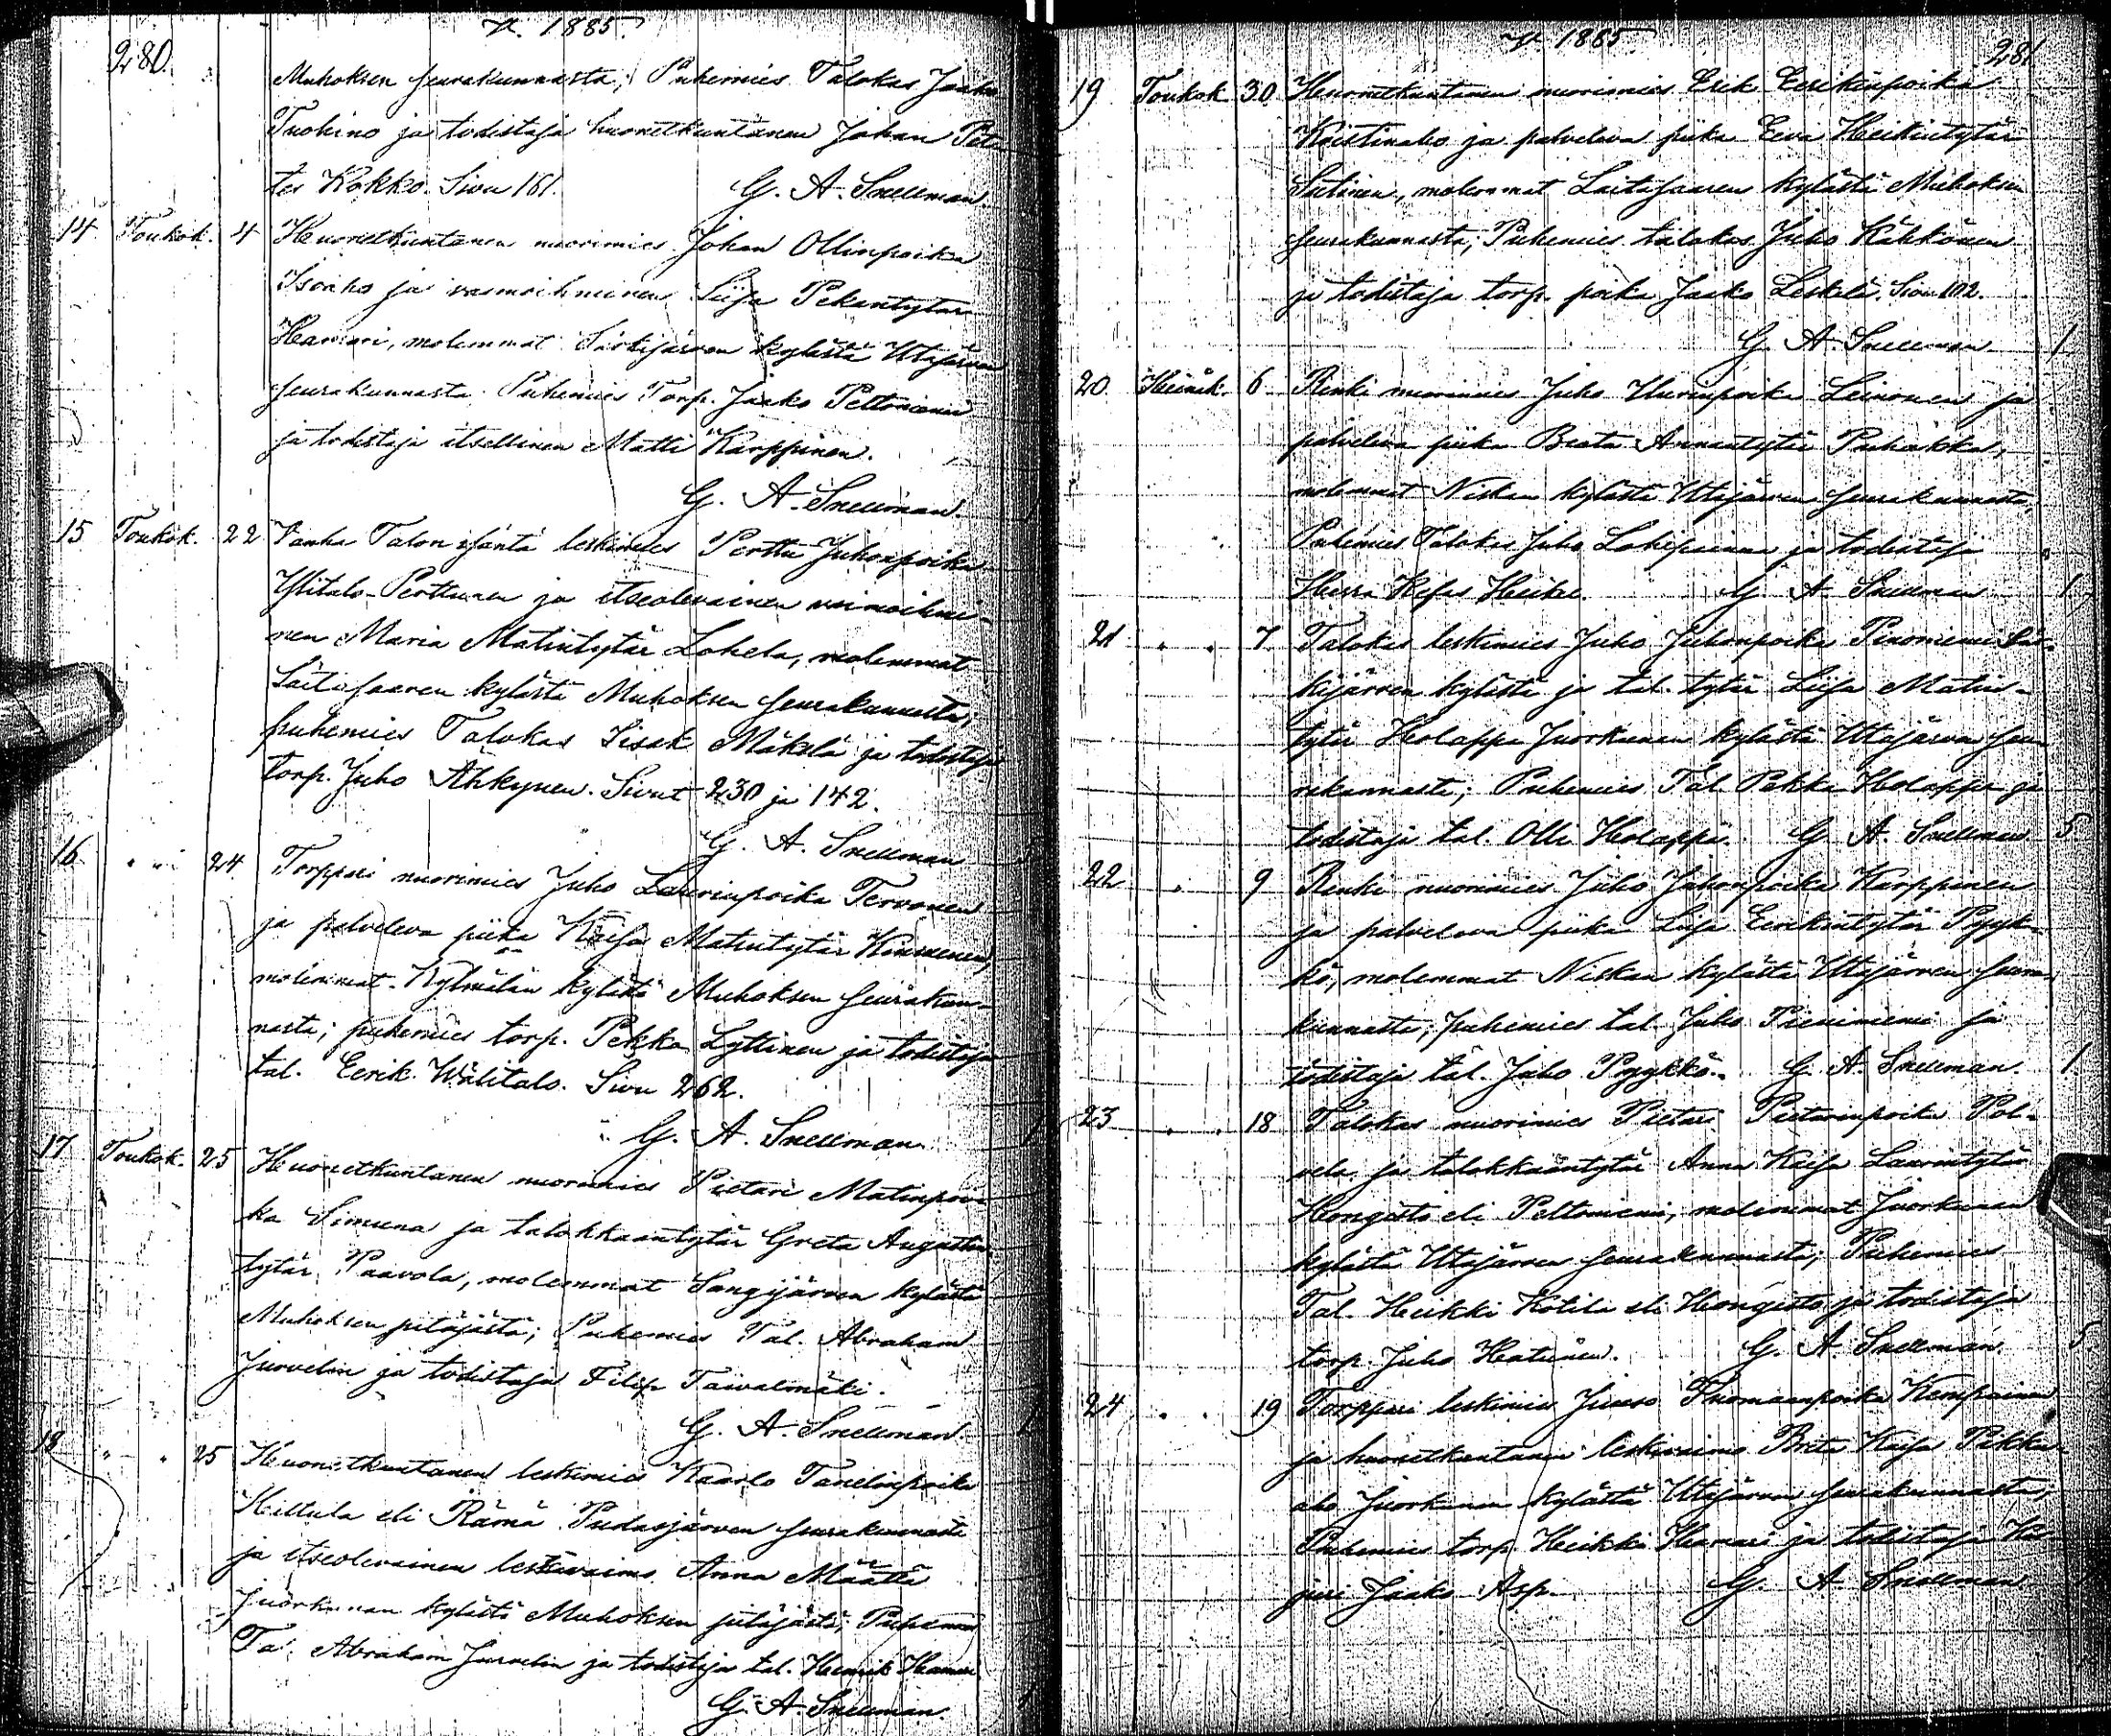 280.
V. 1885.
Muhoksen seurakunnasta; Puhemies Talokas Jaako
Tuohino ja todistaja huonetkuntanen Johan Pet
ter Kokko. Sivu 161. G. A. Snellman.
14 Toukok. 4 Huonetkuntanen nuorimies Johan Ollinpoika
Isoaho ja vaimoihminen Liisa Pekantytär
Hamari, molemmat Särkijärven kylästä Utajärven
seurakunnasta. Puhemies Torp. Jaako Peltoniemi
ja todistaja itsellinen Matti Karppinen.
G. A. Snellman.
15 Toukok. 22 Vanha Talon isäntä leskimies Perttu Juhonpoika
Ylitalo-Perttunen ja itseolevainen vaimoihmi-
nen Maria Matintytär Lohela, molemmat
Laitasaaren kylästä Muhoksen seurakunnasta;
puhemies Talokas Iisak Mäkelä ja todistaja
torp. Juho Ahkynen. Sivut 230 ja 142.
G. A. Snellman
16 " " 24 Torppari nuorimies Juho Laurinpoika Tervonen
ja palveleva piika Kaisa Matintytär Kinnunen,
molemmat Kylmälän kylästä Muhoksen seurakun-
nasta; puhemies torp. Pekka Lyttinen ja todistaja
tal. Eerik Wälitalo. Sivu 262.
G. A. Snellman
17 Toukok. 25 Huonetkuntanen nuorimies Pietari Matinpoi-
ka Simuna ja talokkaantytär Greta Augustin
tytär Paavola, molemmat Sangijärven kylästä
Muhoksen pitäjästä; Puhemies Tal. Abraham
Jurvelin ja todistaja Filip Taivalmäki.
G. A. Snellman
18 " " 25 Huonetkuntanen leskimies Kaarlo Tanelinpoika
Hiltula eli Rämä Pudasjärven seurakunnasta
ja itseolevainen leskivaimo Anna Määttä
Juorkunan kylästä Muhoksen pitäjästä; Puhemies
Tal. Abraham Jurvelin ja todistaja tal. Henrik Hamari
G. A. Snellman.
V. 1885
281
19 Toukok 30. Huonetkuntanen nuorimies Erik Eerikinpoika
Koistinaho ja palveleva piika Eeva Heikintytär
Siitinen, molemmat Laitasaaren kylästä Muhoksen
seurakunnasta; Puhemies talokas Juho Kähkönen
ja todistaja torp. poika Jaako Leskelä. Sivu 102.
G. A. Snellman 1
20. Heinäk. 6 Renki nuorimies Juho Leinonen ja
palveleva piika Beata Annantytär Puhakka,
molemmat Niskan kylästä Utajärven seurakunnasta,
Puhemies Talokas Juho ja todistaja
Herra Kefas Heike. G. A. Snellman 1
21 " " 7 Talokas leskimies Juho Juhonpoika Pinoniemi Sär-
kijärven kylästä ja tal. tytär Liisa Matin-
tytär Holappa Juorkunan kylästä Utajärven seu-
rakunnasta; Puhemies Tal. Pekka Holappa ja
todistaja tal. Olli Holappa. G. A. Snellman 5
22 " 9 Renki nuorimies Juho Juhonpoika Karppinen
ja palveleva piika Liisa Eerikintytär Pyyk-
kö, molemmat Niskan kylästä Utajärven seura-
kunnasta; puhemies tal. Juho Pieniniemi ja
todistaja tal. Juho Pyykkö. G. A. Snellman. 1
23 " " 18 Talokas nuorimies Pietari Pietarinpoika Pol-
vela ja talokkaantytär Anna Kaisa Laurintytär
Hongisto eli Peltoniemi, molemmat Juorkunan
kylästä Utajärven seurakunnasta; Puhemies
Tal. Heikki Kotila eli Hongisto ja todistaja
torp. Juho Heatunen. G. A. Snellman. 5
24 " " 19 Torppari leskimies Juuso Tuomaanpoika Kemppainen
ja huonetkuntanen leskivaimo Brita Kaisa Pikku-
aho Juorkunan kylästä Utajärven seurakunnasta,
Puhemies torp. Heikki Hamari ja todistaja
Jaako Asp. G. A. Snellman